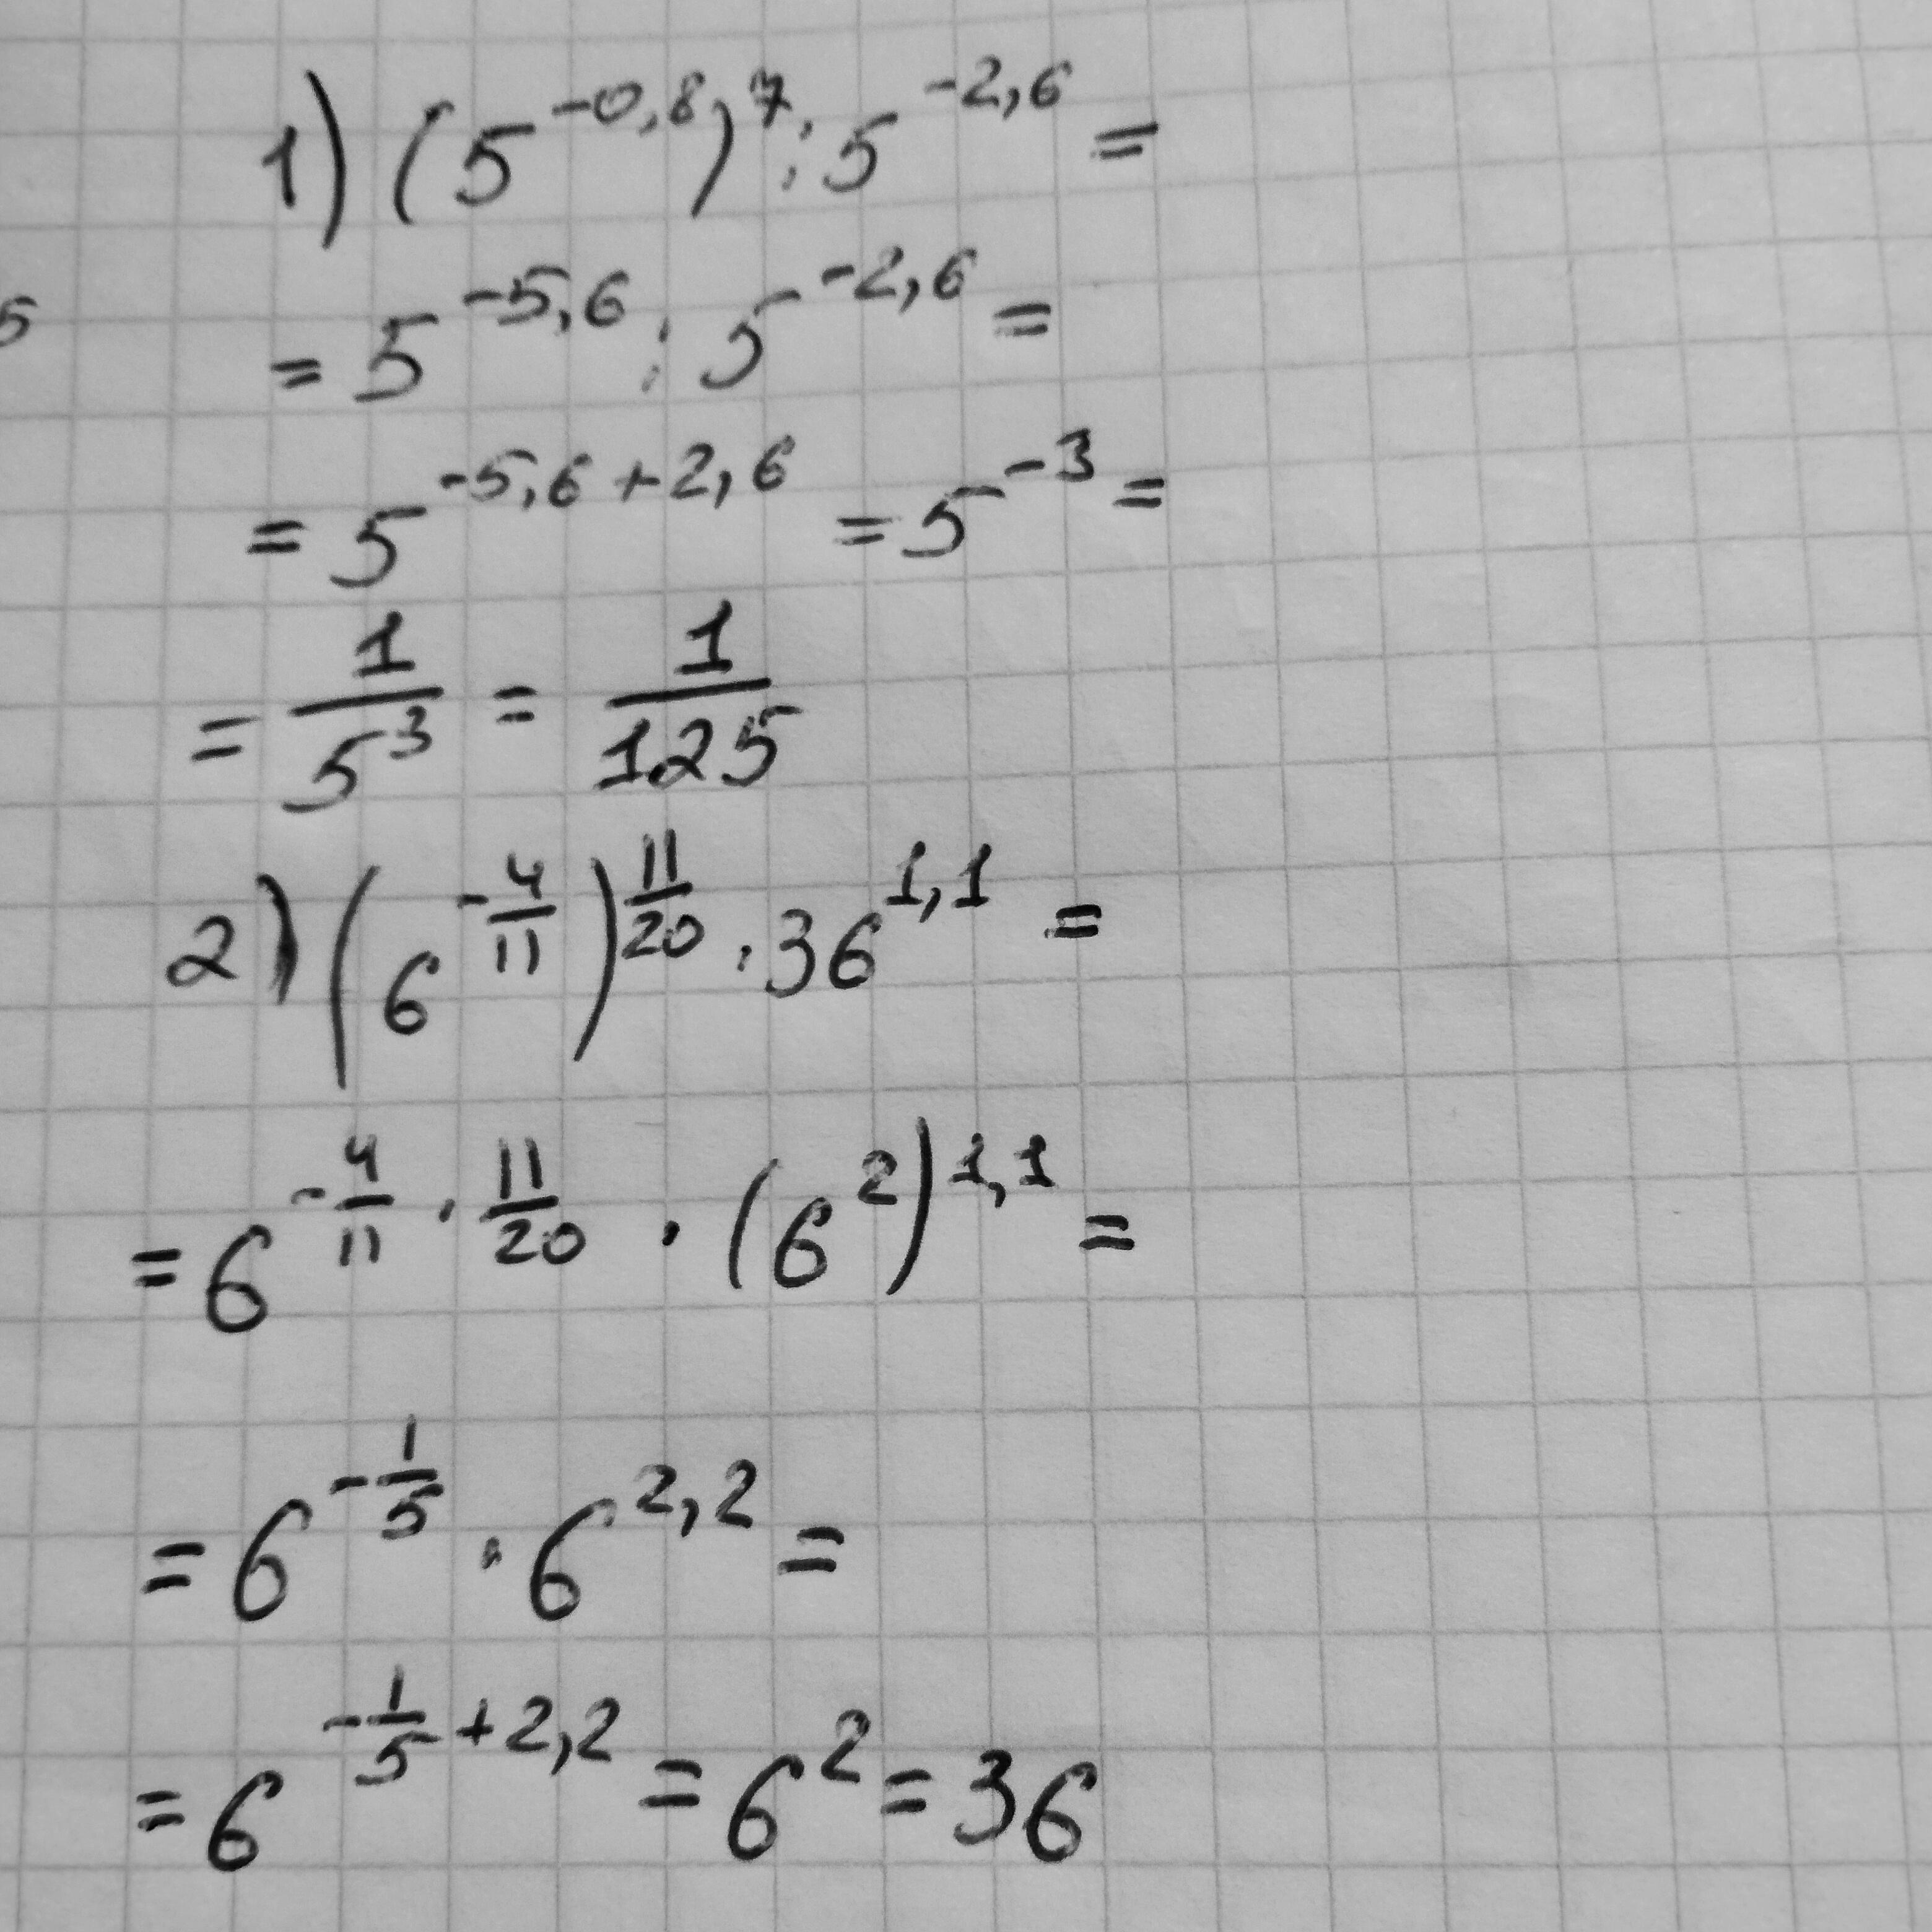 1) (5^{-0,8})^7 : 5^{-2,6} =
5
= 5^{-5,6} : 5^{-2,6} =
= 5^{-5,6+2,6} = 5^{-3} =
= \frac{1}{5^3} = \frac{1}{125}
2) (6^{-\frac{4}{11}})^{\frac{11}{20}} · 36^{1,1} =
= 6^{-\frac{4}{11} · \frac{11}{20}} · (6^2)^{1,1} =
= 6^{-\frac{1}{5}} · 6^{2,2} =
= 6^{-\frac{1}{5}+2,2} = 6^2 = 36